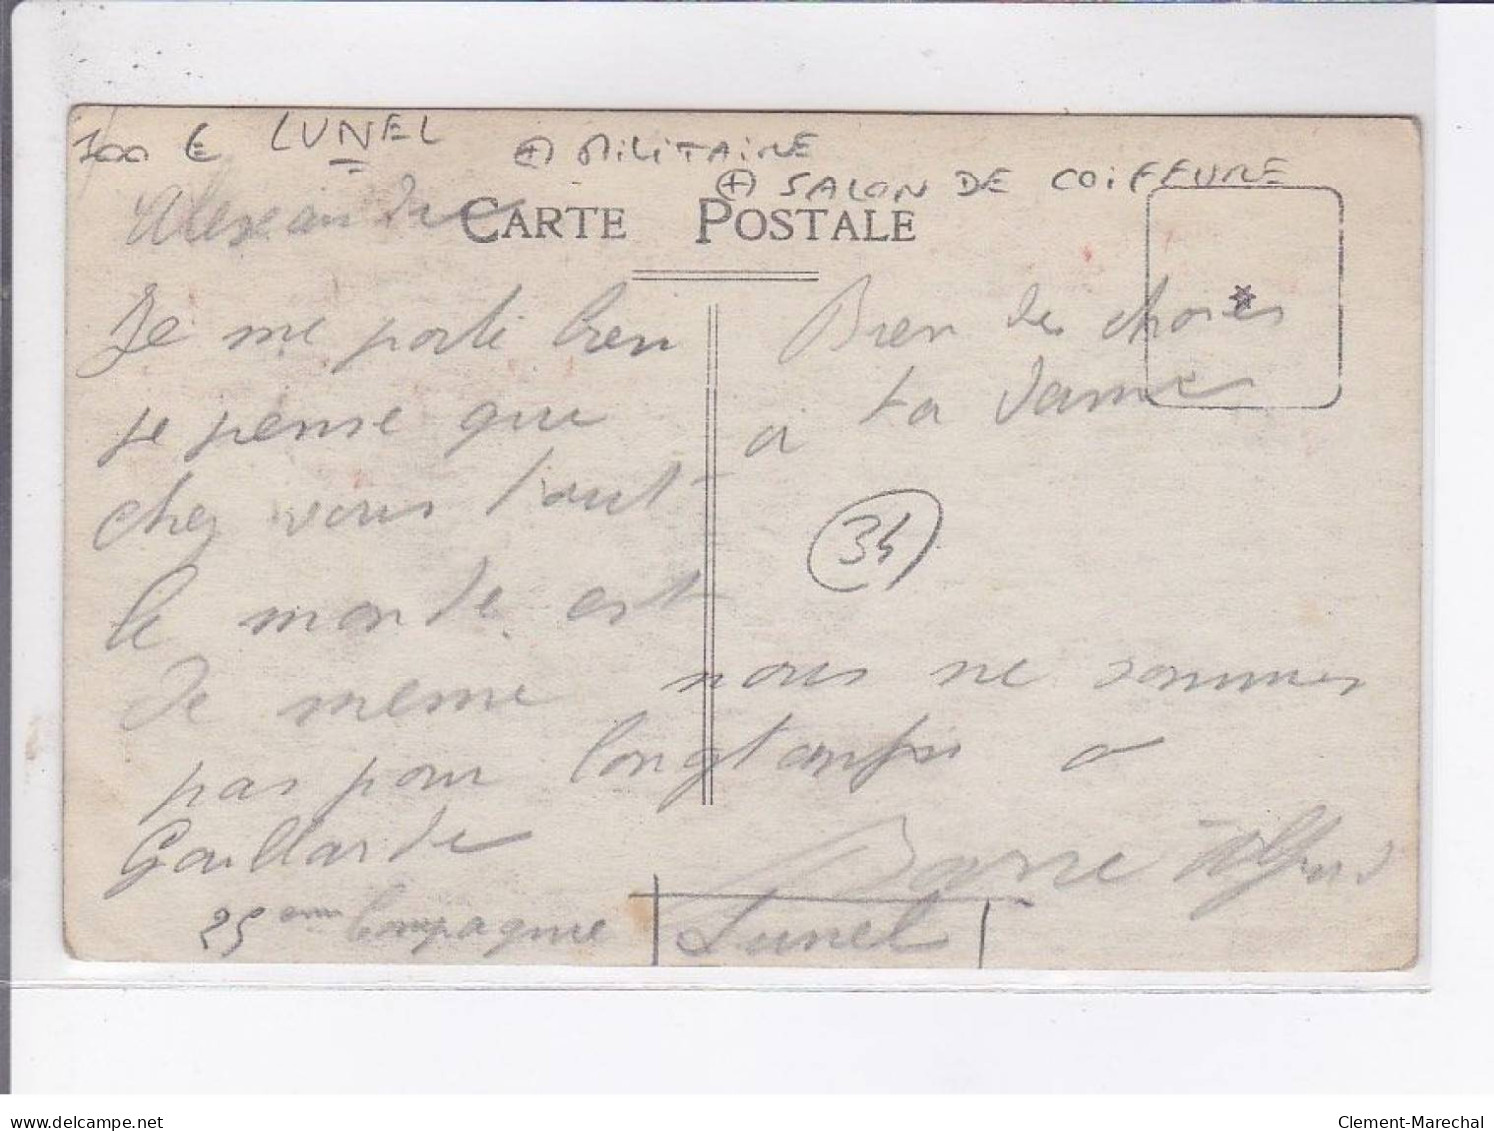 100 € LUNEL
+ MILITAIRE
+ SALON DE COIFFURE
CARTE POSTALE
Alexandre
Je me porte bien
je pense que
chez vous tout
le monde est
de meme nous ne sommes
pas pour longtemps a
Gaillarde
Bien des choses
a ta dame
34
Barre Alfred
25 eme Compagnie
Lunel
delcampe.net
Clement-Marechal